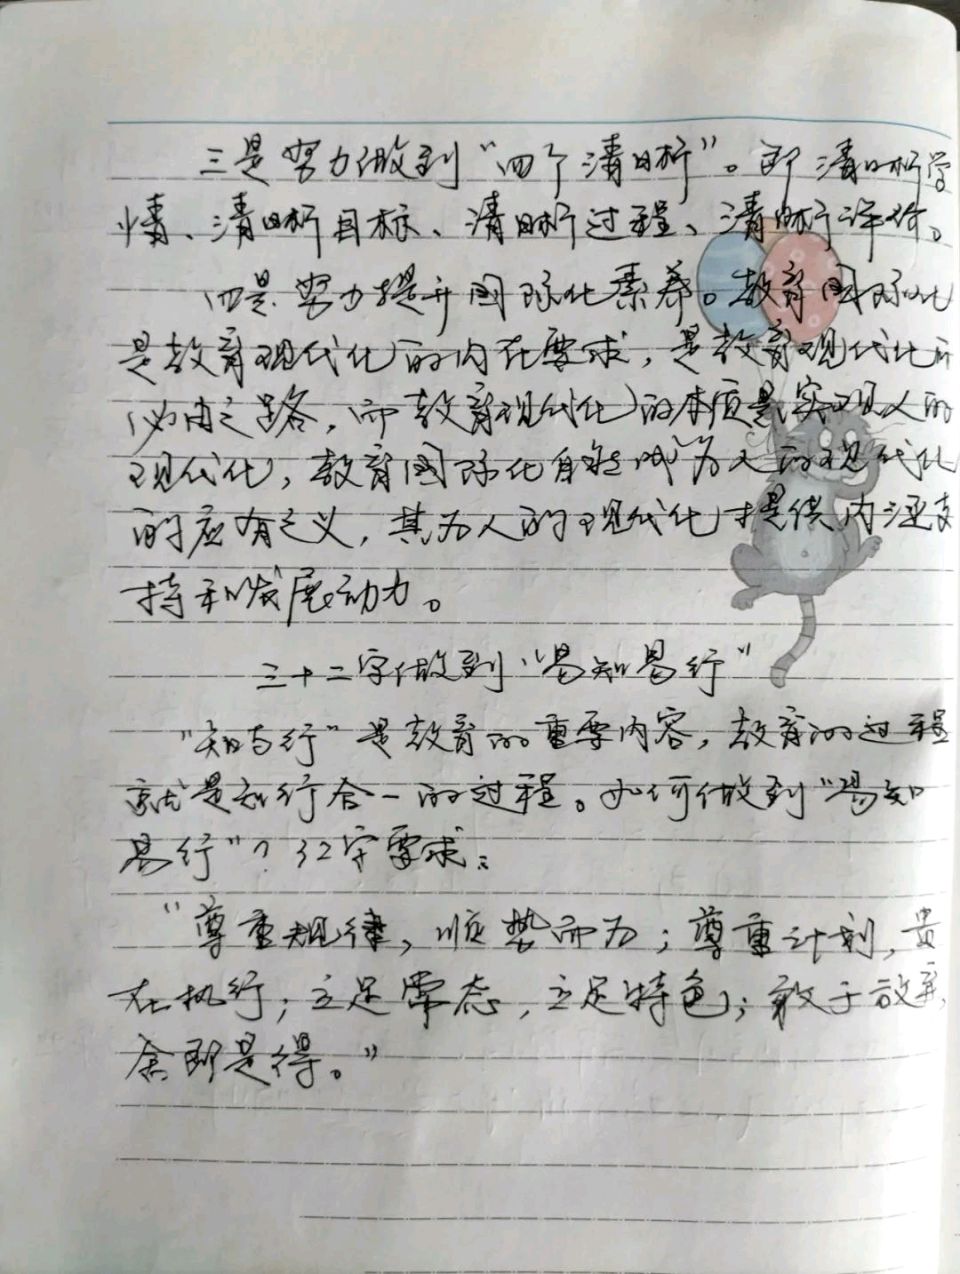 三是努力做到“四个清晰”。即清晰学
情、清晰目标、清晰过程、清晰评价。
四是努力提升国际化素养。教育国际化
是教育现代化的内在要求，是教育现代化的
必由之路，而教育现代化的本质是实现人的
现代化，教育国际化自然成为人的现代化
的应有之义，其为人的现代化才提供内涵支
持和发展动力。
三十二字做到“易知易行”
“知与行”是教育的重要内容，教育的过程
就是知行合一的过程。如何做到“易知
易行”？32字要求：
“尊重规律，顺势而为；尊重计划，贵
在执行；立足常态，立足特色；敢于放弃，
舍即是得。”